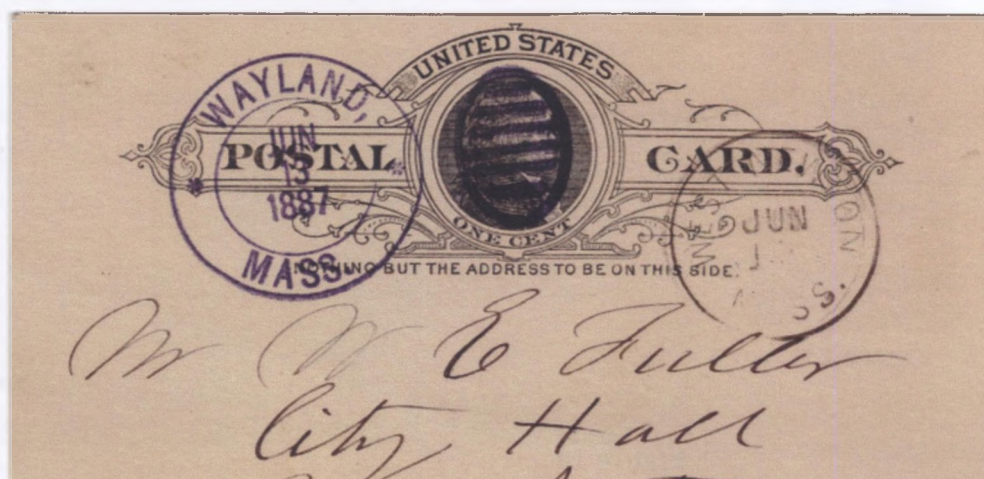 UNITED STATES
POSTAL CARD.
ONE CENT
NOTHING BUT THE ADDRESS TO BE ON THIS SIDE.
WAYLAND,
JUN
13
1887
MASS.
WEST
JUN
MASS.
Mr W E Fuller
City Hall